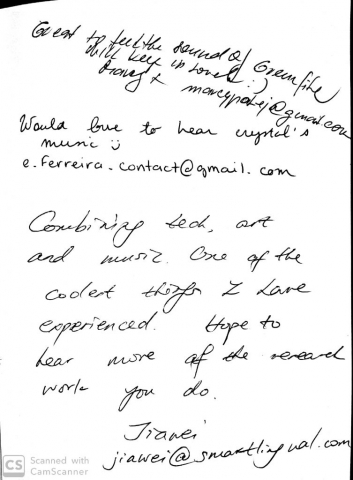 Great to feel the sound of Greenfihe
will keep us
marcypatej@gmail.com
Would love to hear crystal's
music
e.ferreira.contact@gmail.com
Combining tech, art
and music. One of the
coolest things I have
experienced. Hope to
hear more of the research
work you do.
Jiawei
jiawei@smartlingual.com
CS Scanned with
CamScanner